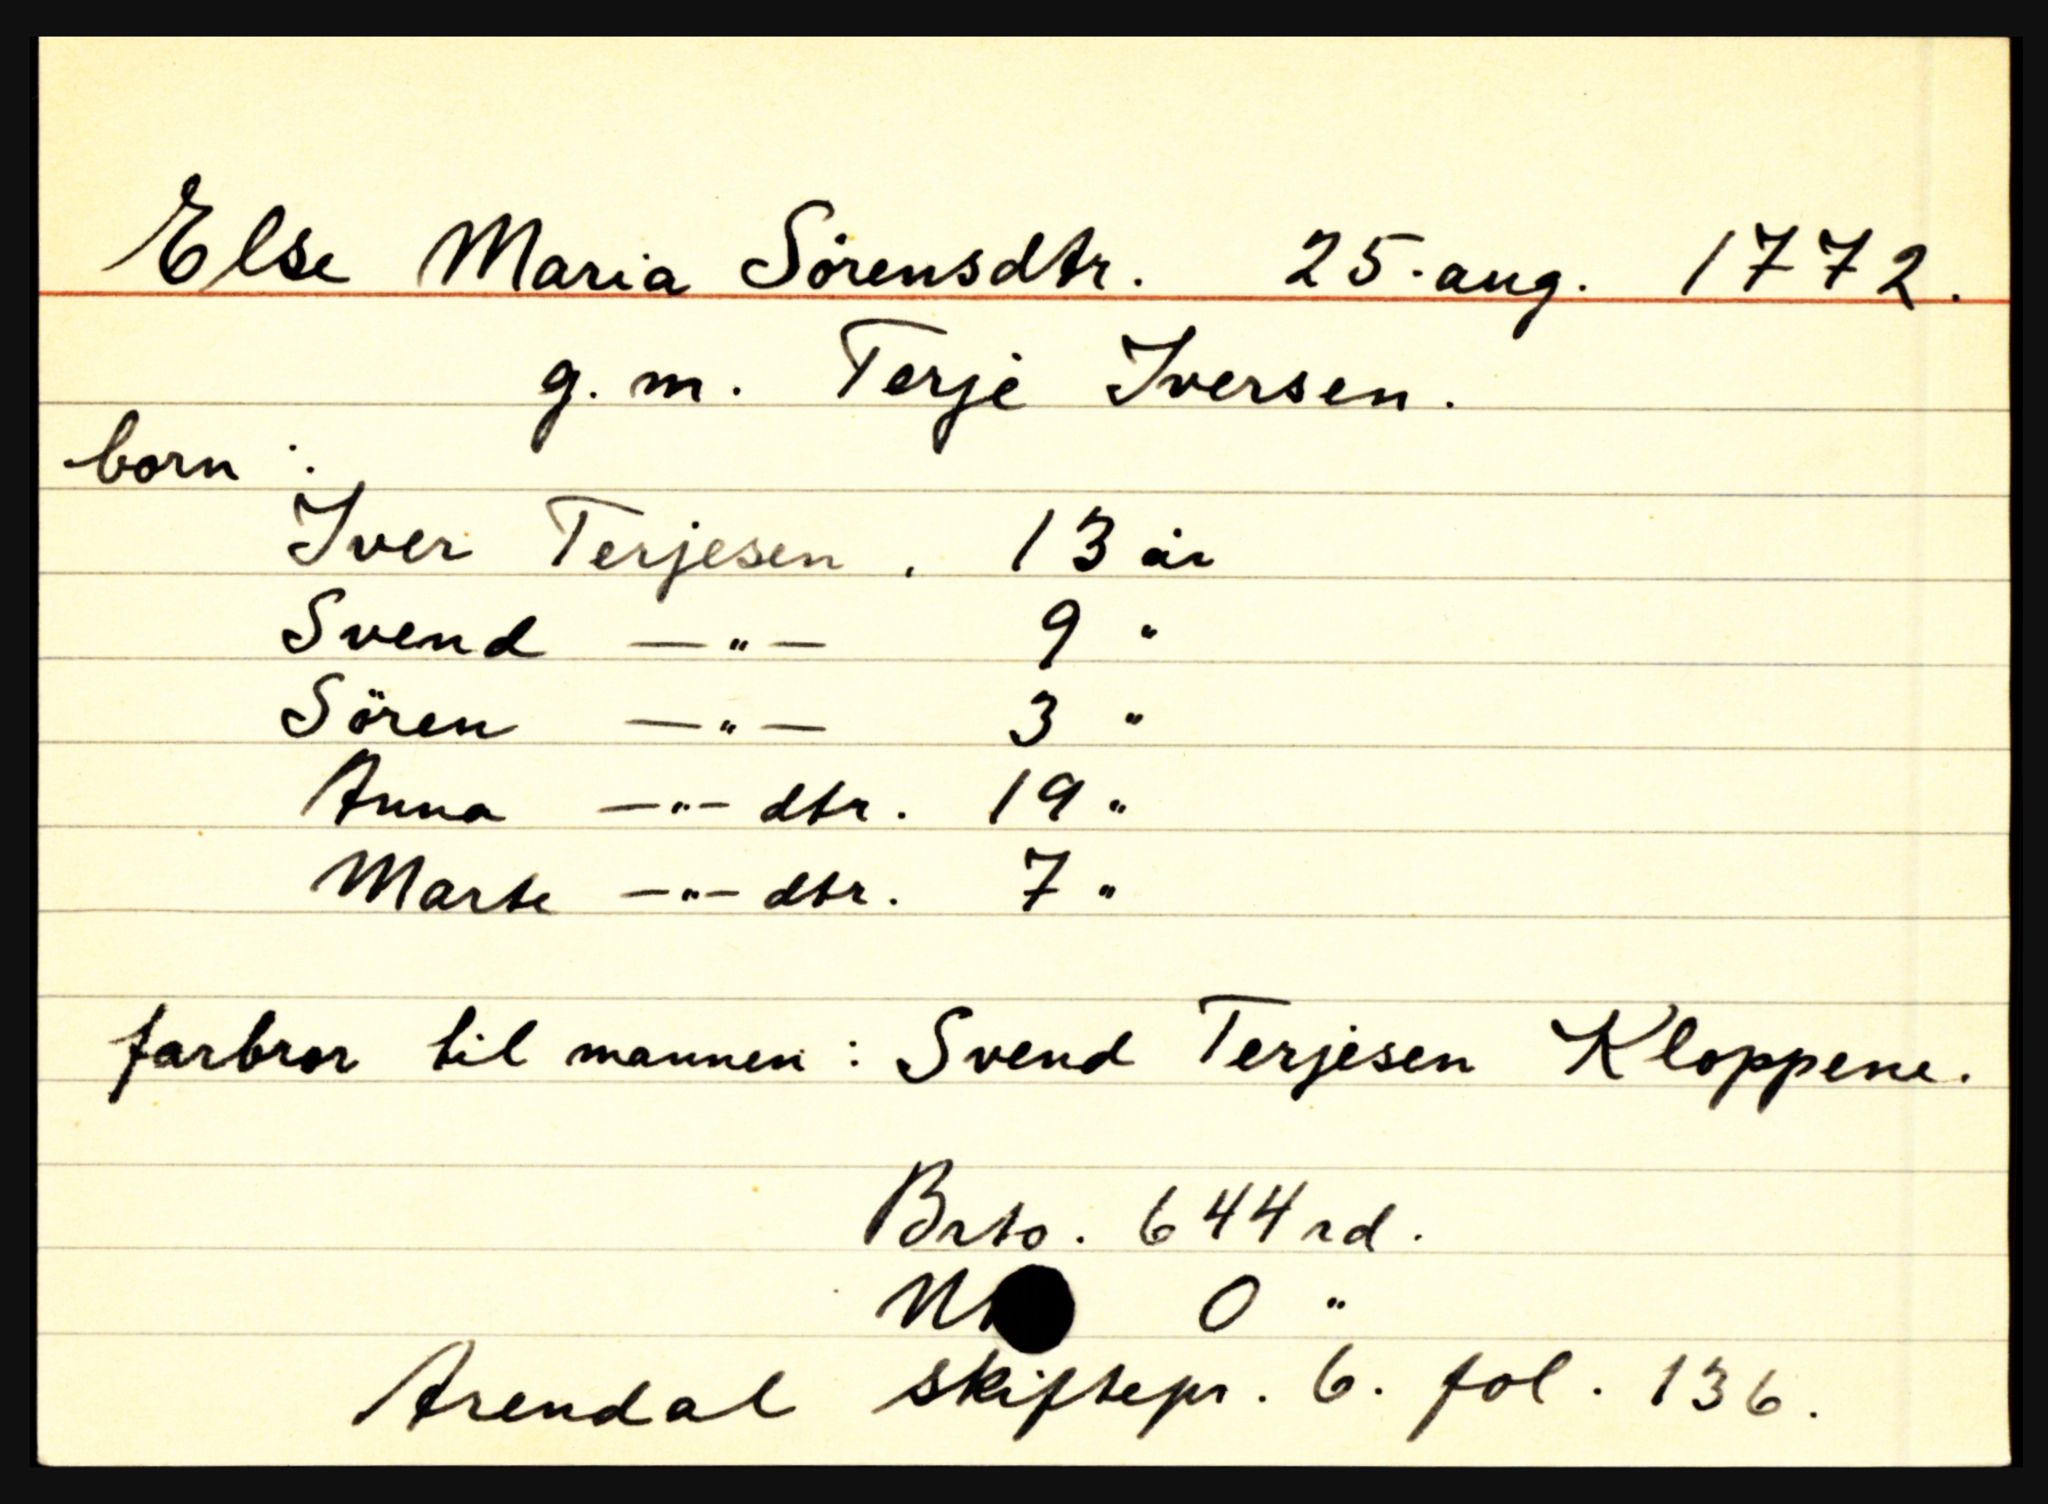 Else Maria Sörensdtr. 25. aug. 1772.
g. m. Terje Iversen.
born :
Iver Terjesen . 13 år
Svend —"— 9 "
Sören —"— 3 "
Anna —"— dtr. 19 "
Marte —"— dtr. 7 "
farbror til mannen : Svend Terjesen Kloppene.
Brto. 644 rd.
0 "
Arendal skiftepr. 6. fol. 136.